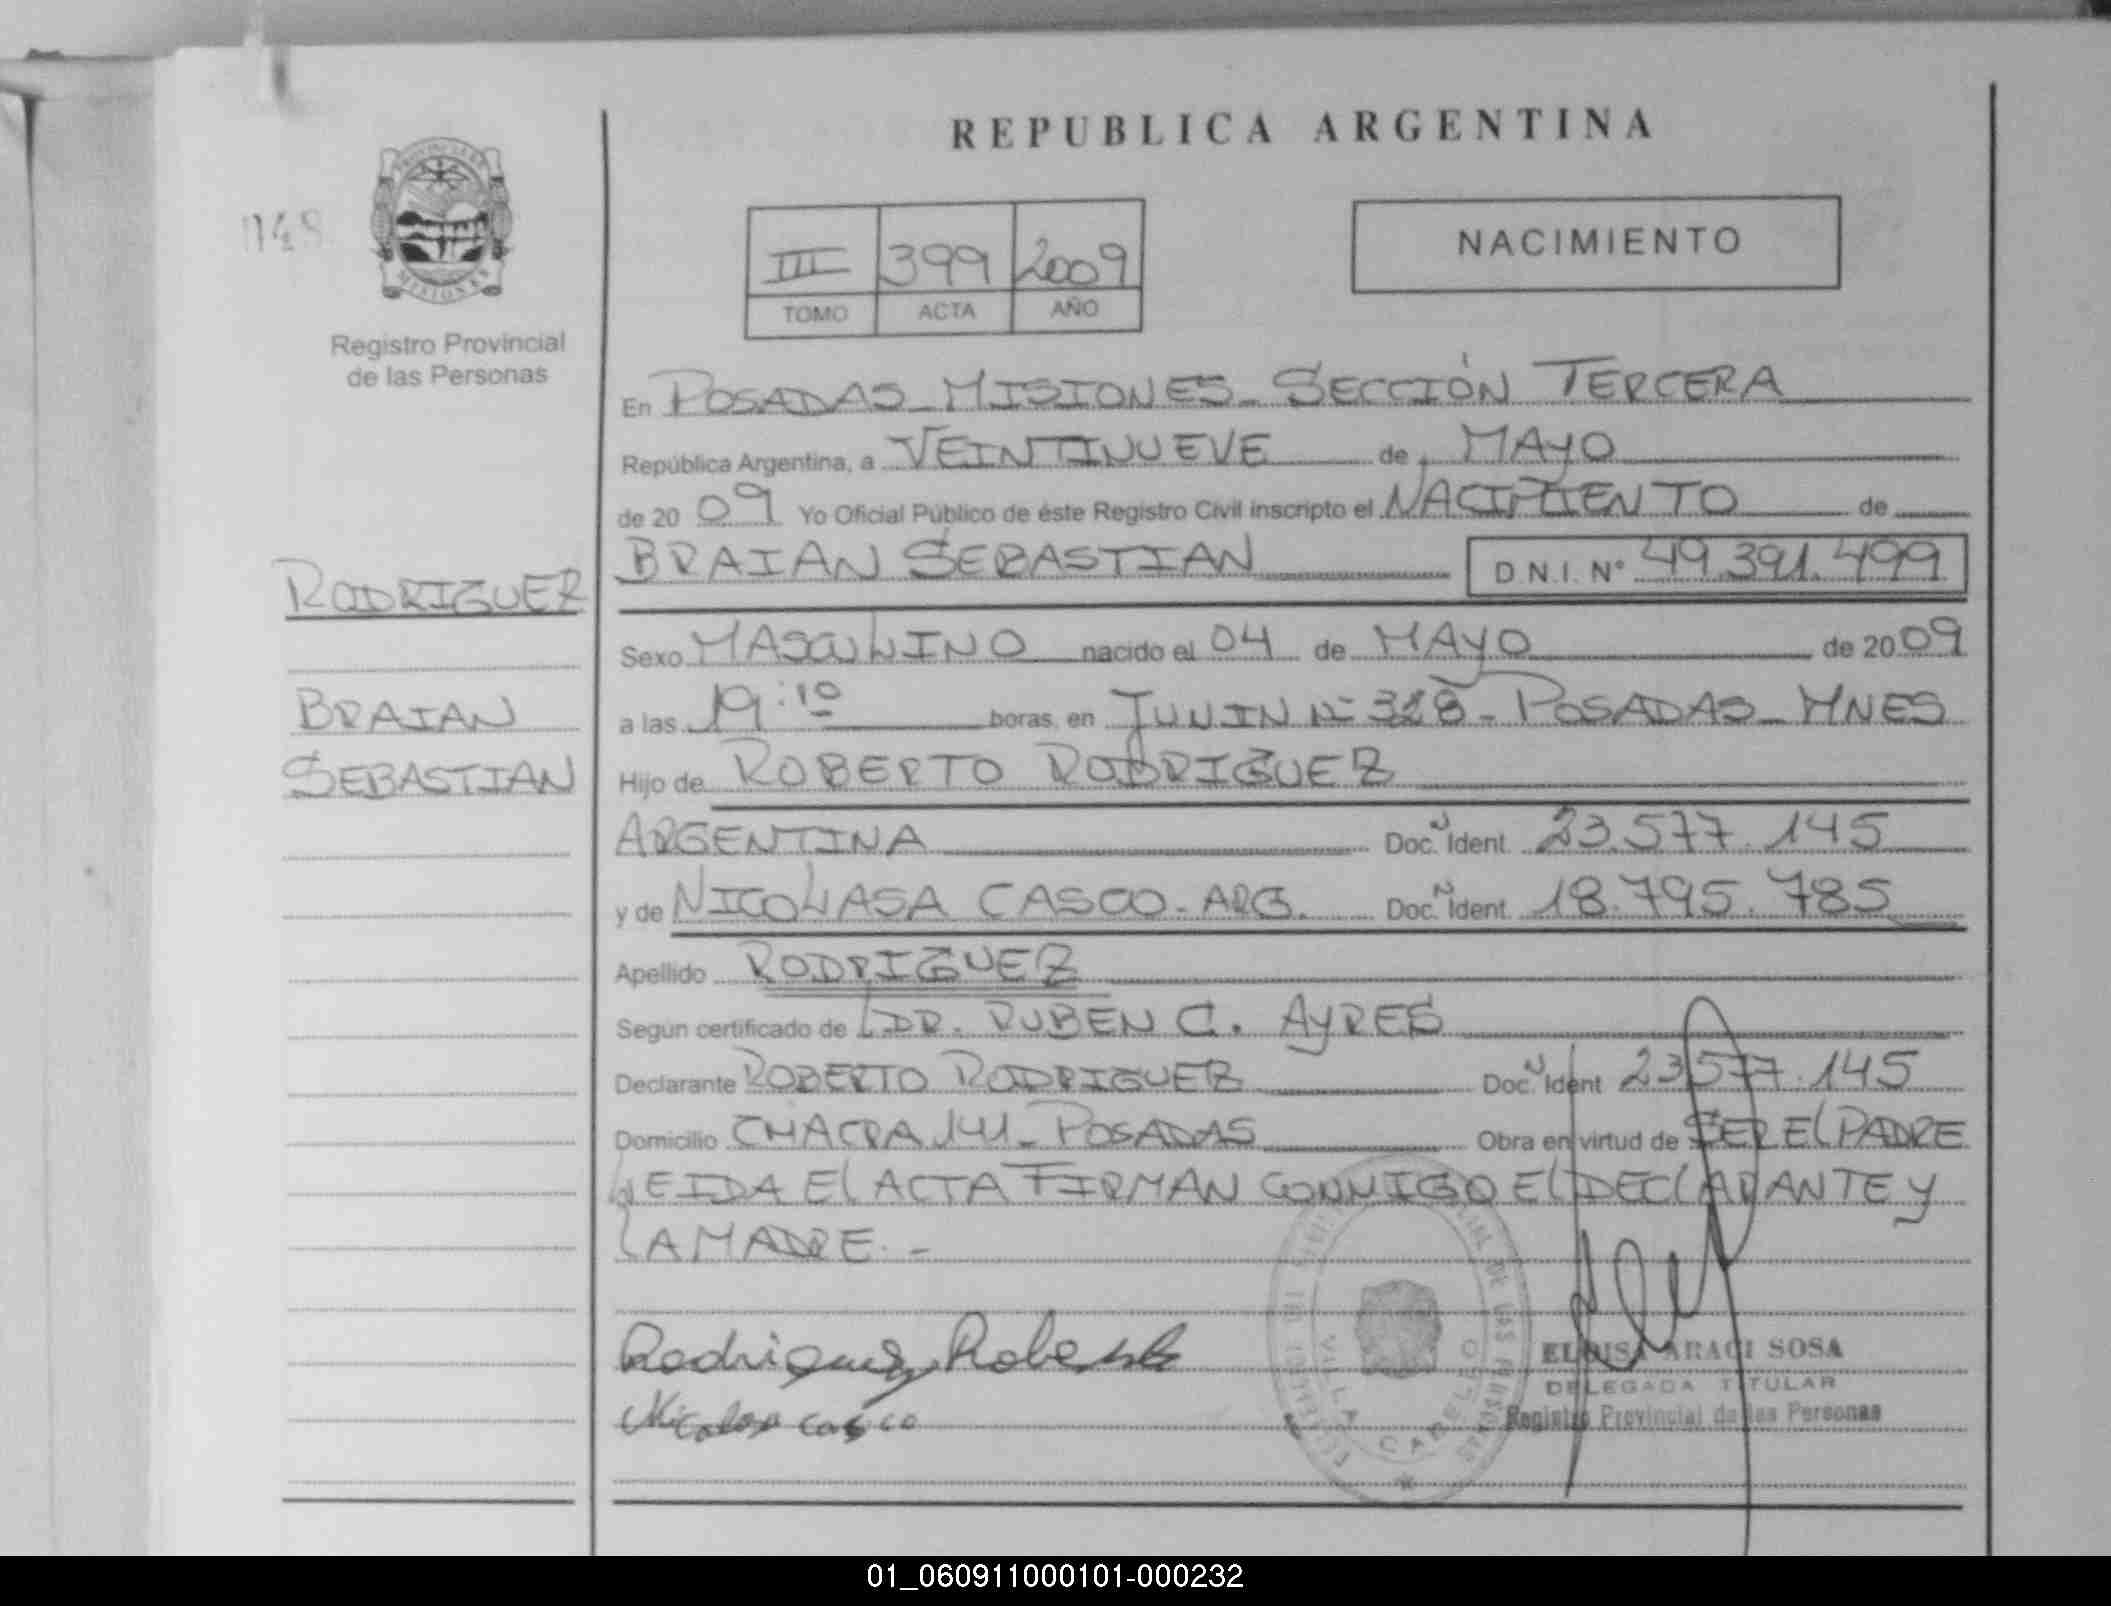 REPUBLICA ARGENTINA
PROVINCIA DE
MISIONES
Registro Provincial
de las Personas
III 399 2009
TOMO ACTA AÑO
NACIMIENTO
En POSADAS - MISIONES - SECCIÓN TERCERA
República Argentina, a VEINTINUEVE de MAYO
de 20 09 Yo Oficial Público de éste Registro Civil inscripto el NACIMIENTO de
BRAIAN SEBASTIAN D.N.I. N° 49.391.499
RODRIGUEZ
Sexo MASCULINO nacido el 04 de MAYO de 20 09
BRAIAN
a las 19:10 horas, en JUNIN N° 328 - POSADAS - MNES
SEBASTIAN
Hijo de ROBERTO RODRIGUEZ
ARGENTINA Doc. Ident 23.577.145
y de NICOLASA CASCO - ARG. Doc. Ident 18.795.785
Apellido RODRIGUEZ
Según certificado de DR. RUBEN C. AYRES
Declarante ROBERTO RODRIGUEZ Doc. Ident 23.577.145
Domicilio CHACRA 141 - POSADAS Obra en virtud de SER EL PADRE
LEIDA EL ACTA FIRMAN CONMIGO EL DECLARANTE Y
LA MADRE. -
Rodriguez Roberto
ELOISA ARACI SOSA
DELEGADA TITULAR
Nicolasa Casco
Registro Provincial de las Personas
VILLA CABELLO
01_060911000101-000232